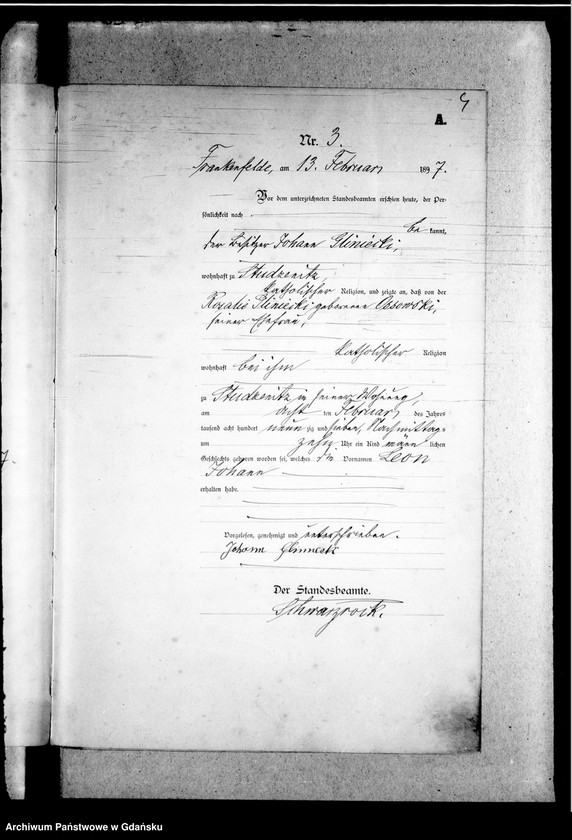 A.
Nr. 3.
Frankenfelde, am 13. Februar 1897.
Vor dem unterzeichneten Standesbeamten erschien heute, der Per-
sönlichkeit nach
be kannt,
der Besitzer Johann Gliniecki,
wohnhaft zu Studzenitz,
katholischer Religion, und zeigte an, daß von der
Rosalie Gliniecki geborenen Ossowski,
seiner Ehefrau,
katholischer Religion
wohnhaft bei ihm
zu Studzenitz in seiner Wohnung,
am acht ten Februar des Jahres
tausend acht hundert neun zig und sieben, Nachmittag
um zehn Uhr ein Kind männ lichen
Geschlechts geboren worden sei, welches die Vornamen Leon
Johann
erhalten habe.
Vorgelesen, genehmigt und unterschrieben.
Johann
Der Standesbeamte.
Schwarzrock.
Archiwum Państwowe w Gdańsku